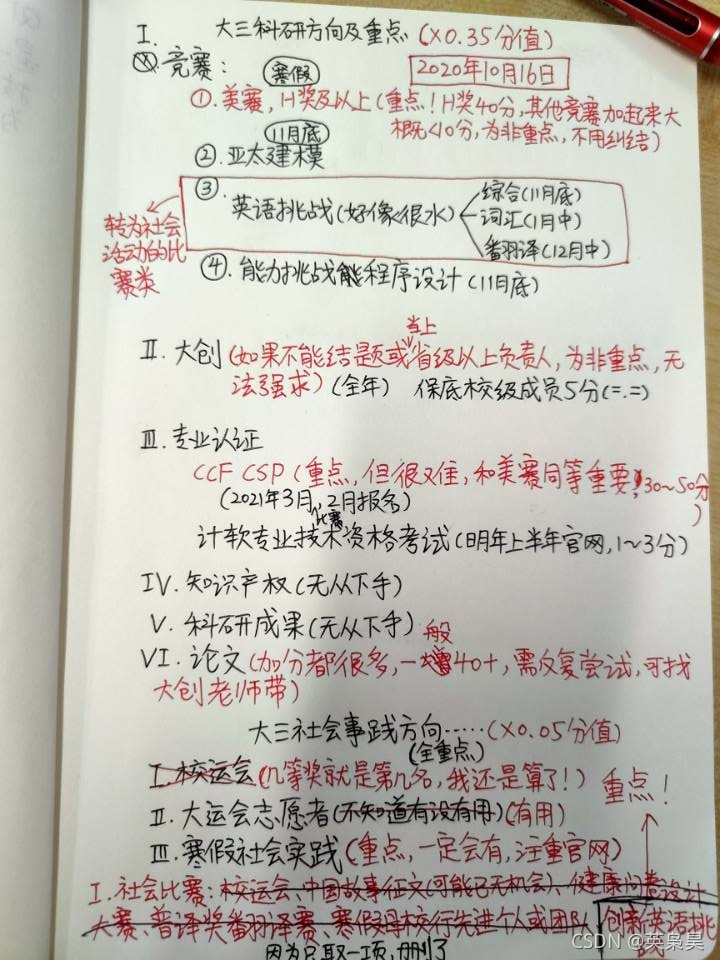 I. 大三科研方向及重点 (×0.35分值)
竞赛: 寒假 2020年10月16日
①. 美赛, H奖及以上(重点!H奖40分,其他竞赛加起来大
概<10分,为非重点,不用纠结)
11月底
②. 亚太建模
③. 英语挑战(好像很水) 综合(11月底)
词汇(1月中)
翻译(12月中)
转为社会
活动的比
赛类
④. 能力挑战 程序设计(11月底)
II. 大创(如果不能结题或当上省级以上负责人,为非重点,无
法强求)(全年) 保底校级成员5分(=.=)
III. 专业认证
CCF CSP(重点,但很难,和美赛同等重要!30~50分)
(2021年3月比赛,2月报名)
计软专业技术资格考试(明年上半年官网,1~3分)
IV. 知识产权(无从下手)
V. 科研成果(无从下手)
VI. 论文(加分都很多,一般40+,需反复尝试,可找
大创老师带)
大三社会实践方向……(×0.05分值)
(全重点)
I. 校运会(几等奖就是第几名,我还是算了!)
重点!
II. 大运会志愿者(不知道有没有用)(有用)
III. 寒假社会实践(重点,一定会有,注重官网)
I. 社会比赛:校运会、中国故事征文(可能已无机会)、健康问卷设计
大赛、普译奖翻译赛、寒假母校行先进个人或团队 创新英语挑
战
因为只取一项,删了
CSDN @英枭昊